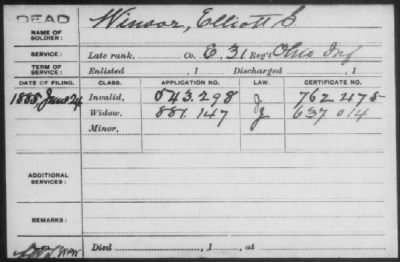 DEAD
NAME OF SOLDIER: Winsor, Elliott S
SERVICE: Late rank, Co. E. 31 Reg't Ohio Inf
TERM OF SERVICE: Enlisted , 1 Discharged , 1
DATE OF FILING. CLASS. APPLICATION NO. LAW. CERTIFICATE NO.
1885, June 24 Invalid, 543.298 J 762 475
Widow, 881.147 J 637 014
Minor,
ADDITIONAL SERVICES:
REMARKS:
Died , 1 , at